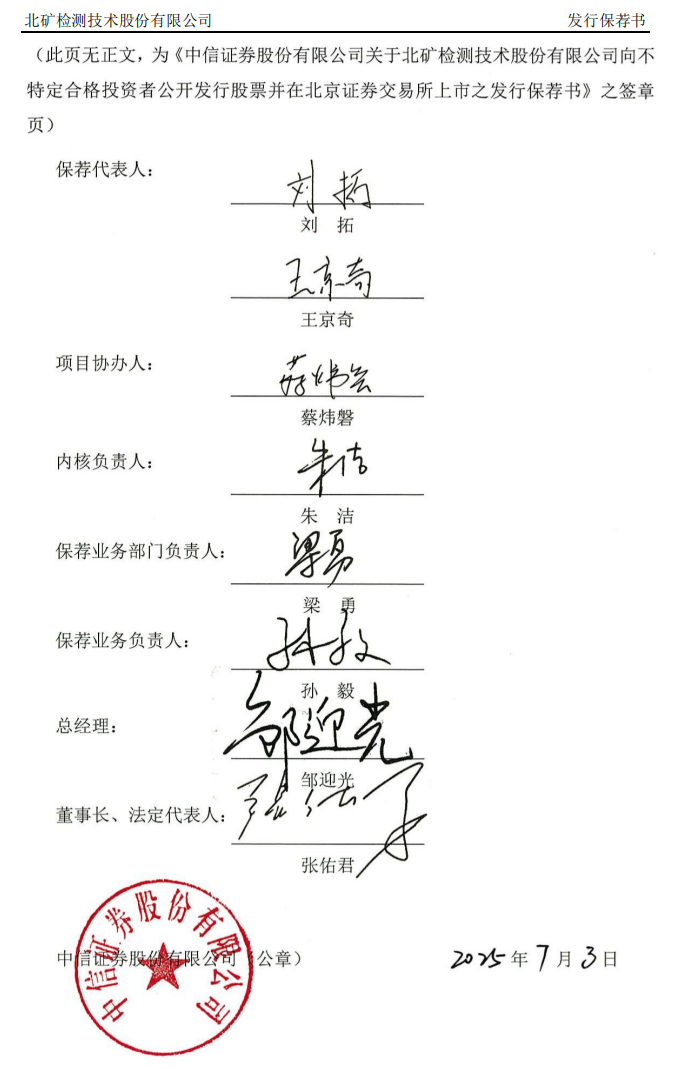 北矿检测技术股份有限公司 发行保荐书
（此页无正文，为《中信证券股份有限公司关于北矿检测技术股份有限公司向不
特定合格投资者公开发行股票并在北京证券交易所上市之发行保荐书》之签章
页）
保荐代表人：
刘拓
刘 拓
王京奇
王京奇
项目协办人：
蔡炜磐
内核负责人：
朱洁
朱 洁
保荐业务部门负责人：
梁勇
梁 勇
保荐业务负责人：
孙毅
孙 毅
总经理：
邹迎光
邹迎光
董事长、法定代表人：
张佑君
张佑君
中信证券股份有限公司（公章） 2025年7月3日
中信证券股份有限公司